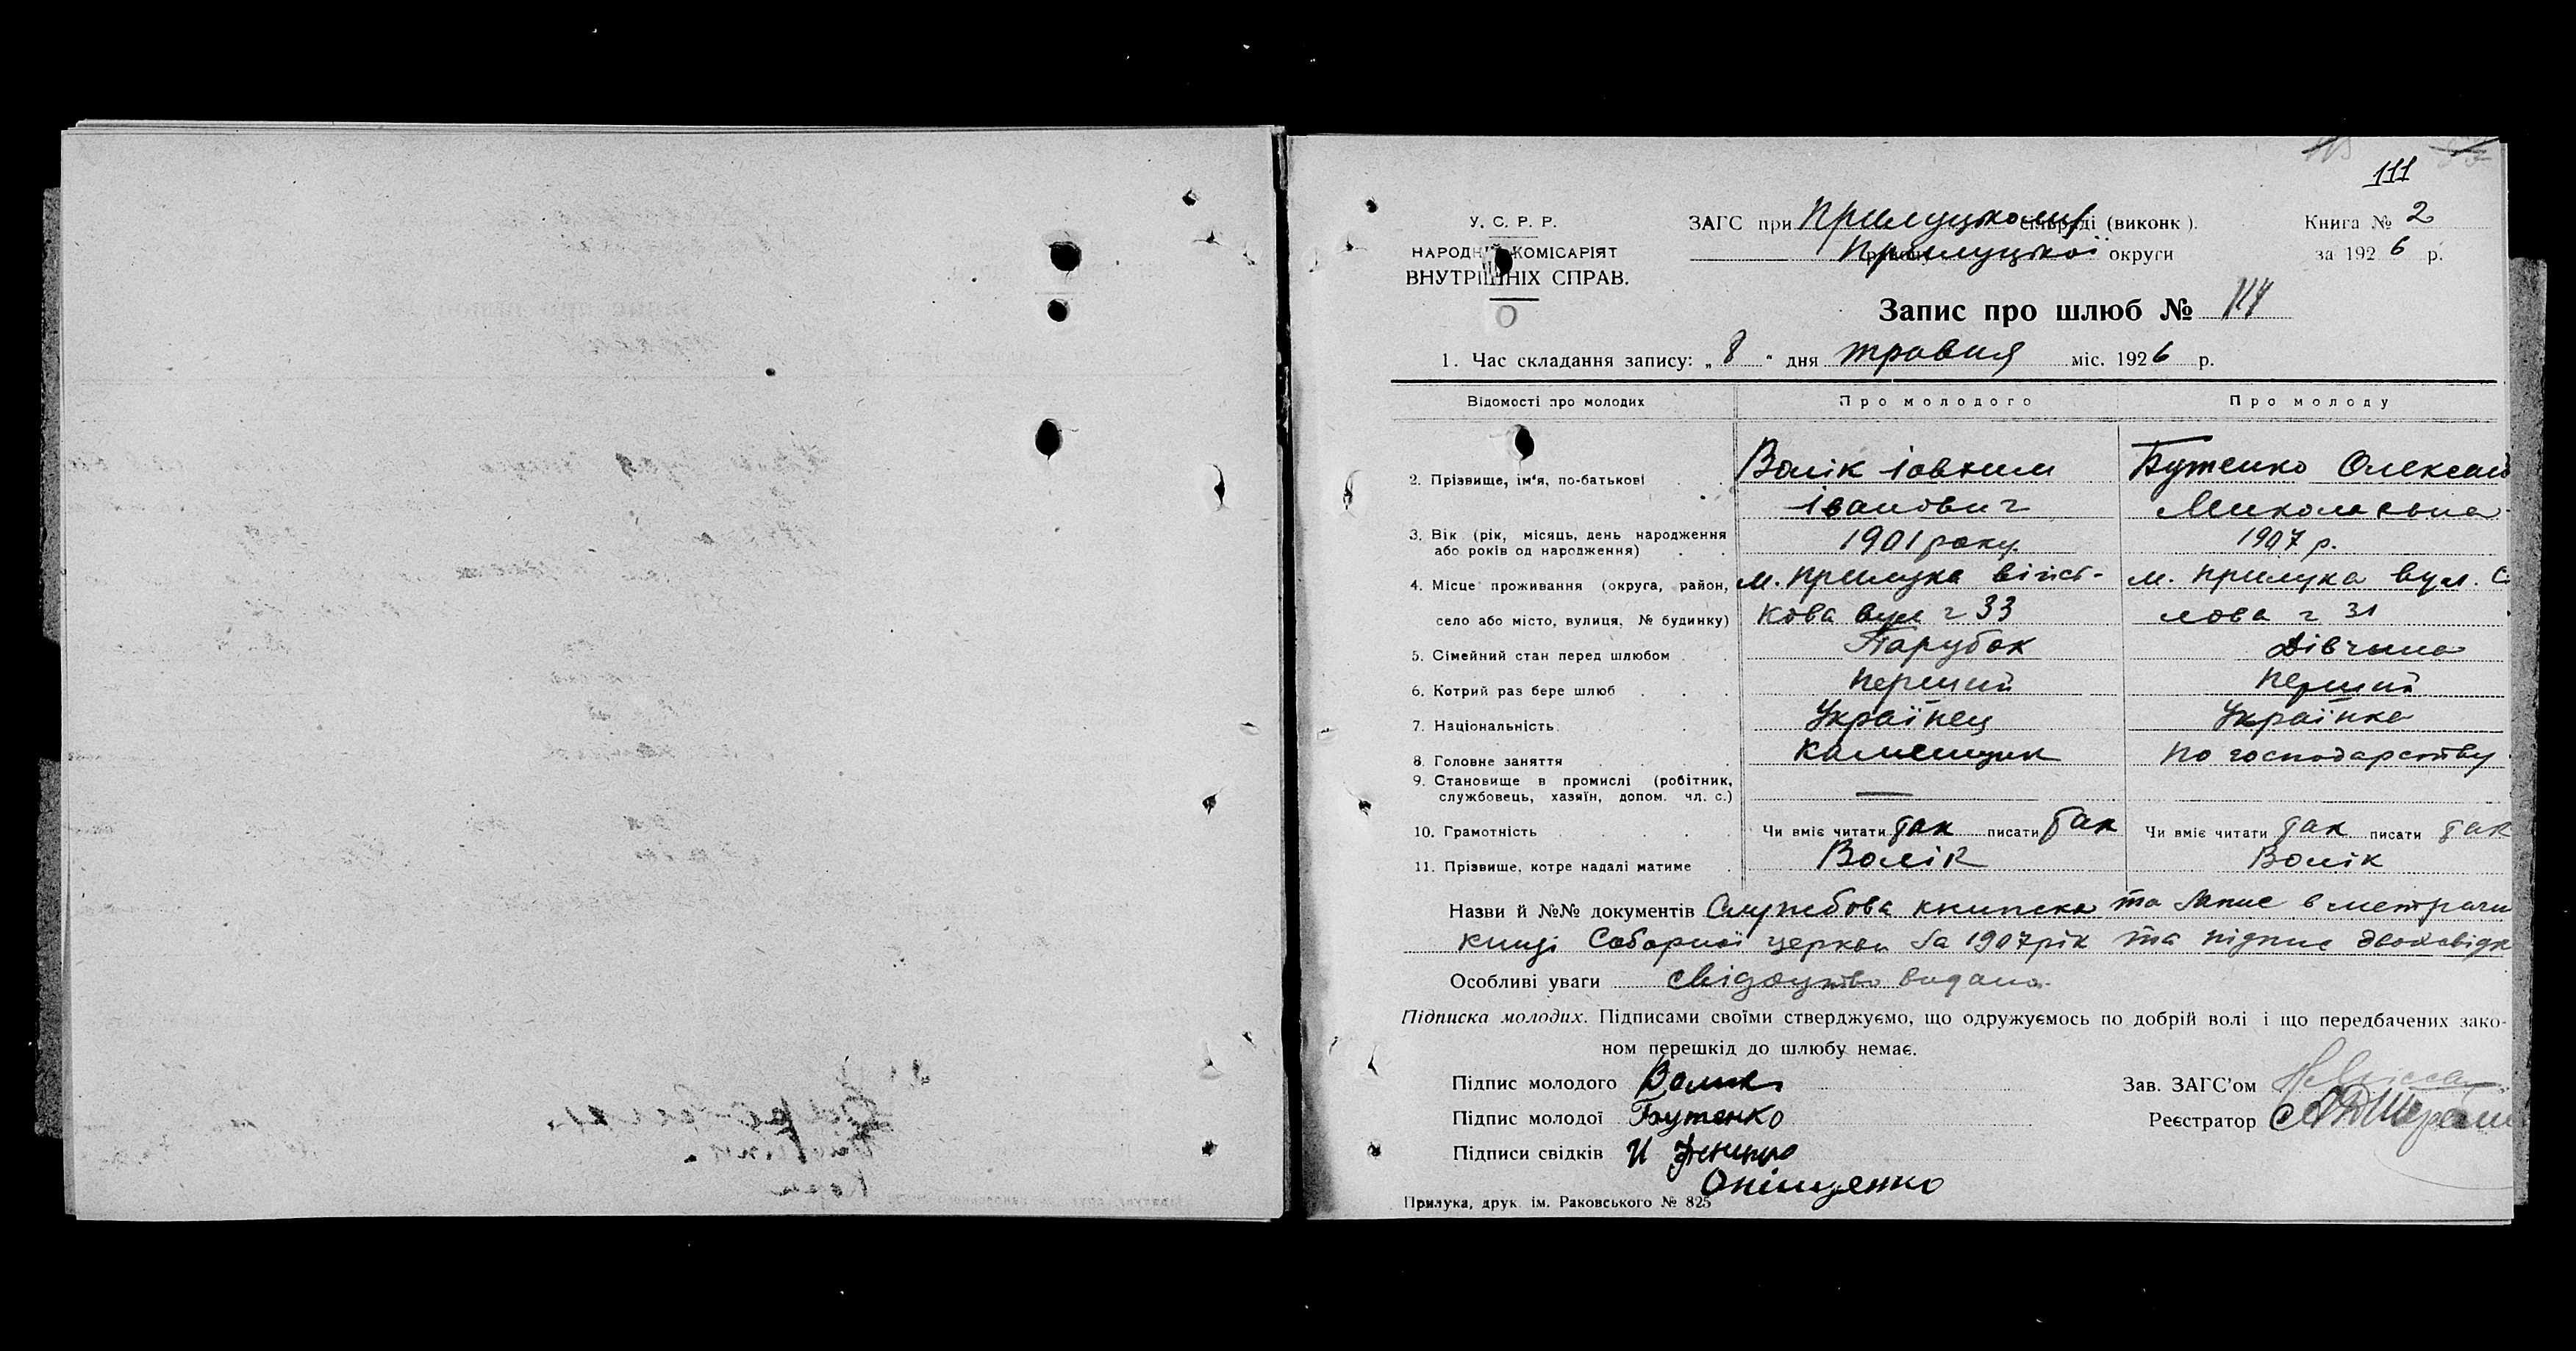 111
У. С. Р. Р.
НАРОДНІЙ КОМІСАРІЯТ
ВНУТРІШНІХ СПРАВ.
ЗАГС при Прилуцькому сільраді (виконк).
Прилуцької округи
Книга № 2
за 1926 р.
Запис про шлюб № 114
1. Час складання запису: „ 8 " дня травня міс. 1926 р.
Відомості про молодих Про молодого Про молоду
2. Прізвище, ім'я, по-батькові Волік Іовхим Бутенко Олексан
Іванович Миколаєвна
3. Вік (рік, місяць, день народження або років од народження) 1901 року 1907 р.
4. Місце проживання (округа, район, м. Прилука війсь- м. Прилука вул. С
село або місто, вулиця, № будинку) кова вул ч 33 лова ч 31
5. Сімейний стан перед шлюбом Парубок Дівчина
6. Котрий раз бере шлюб перший перший
7. Національність Українец Українка
8. Головне заняття каменщик по господарству
9. Становище в промислі (робітник, службовець, хазяїн, допом. чл. с.) —
10. Грамотність Чи вміє читати так писати так Чи вміє читати так писати так
11. Прізвище, котре надалі матиме Волік Волік
Назви й №№ документів Службова книжка та запис в метричн
книзі Соборної церкви за 1907 рік та підпис двох свідк
Особливі уваги свідоцтво видано
Підписка молодих. Підписами своїми стверджуємо, що одружуємось по добрій волі і що передбачених зако-
ном перешкід до шлюбу немає.
Підпис молодого Волик
Зав. ЗАГС'ом
Підпис молодої Бутенко
Реєстратор
Підписи свідків И
Оніщенко
Прилука, друк ім. Раковського № 825